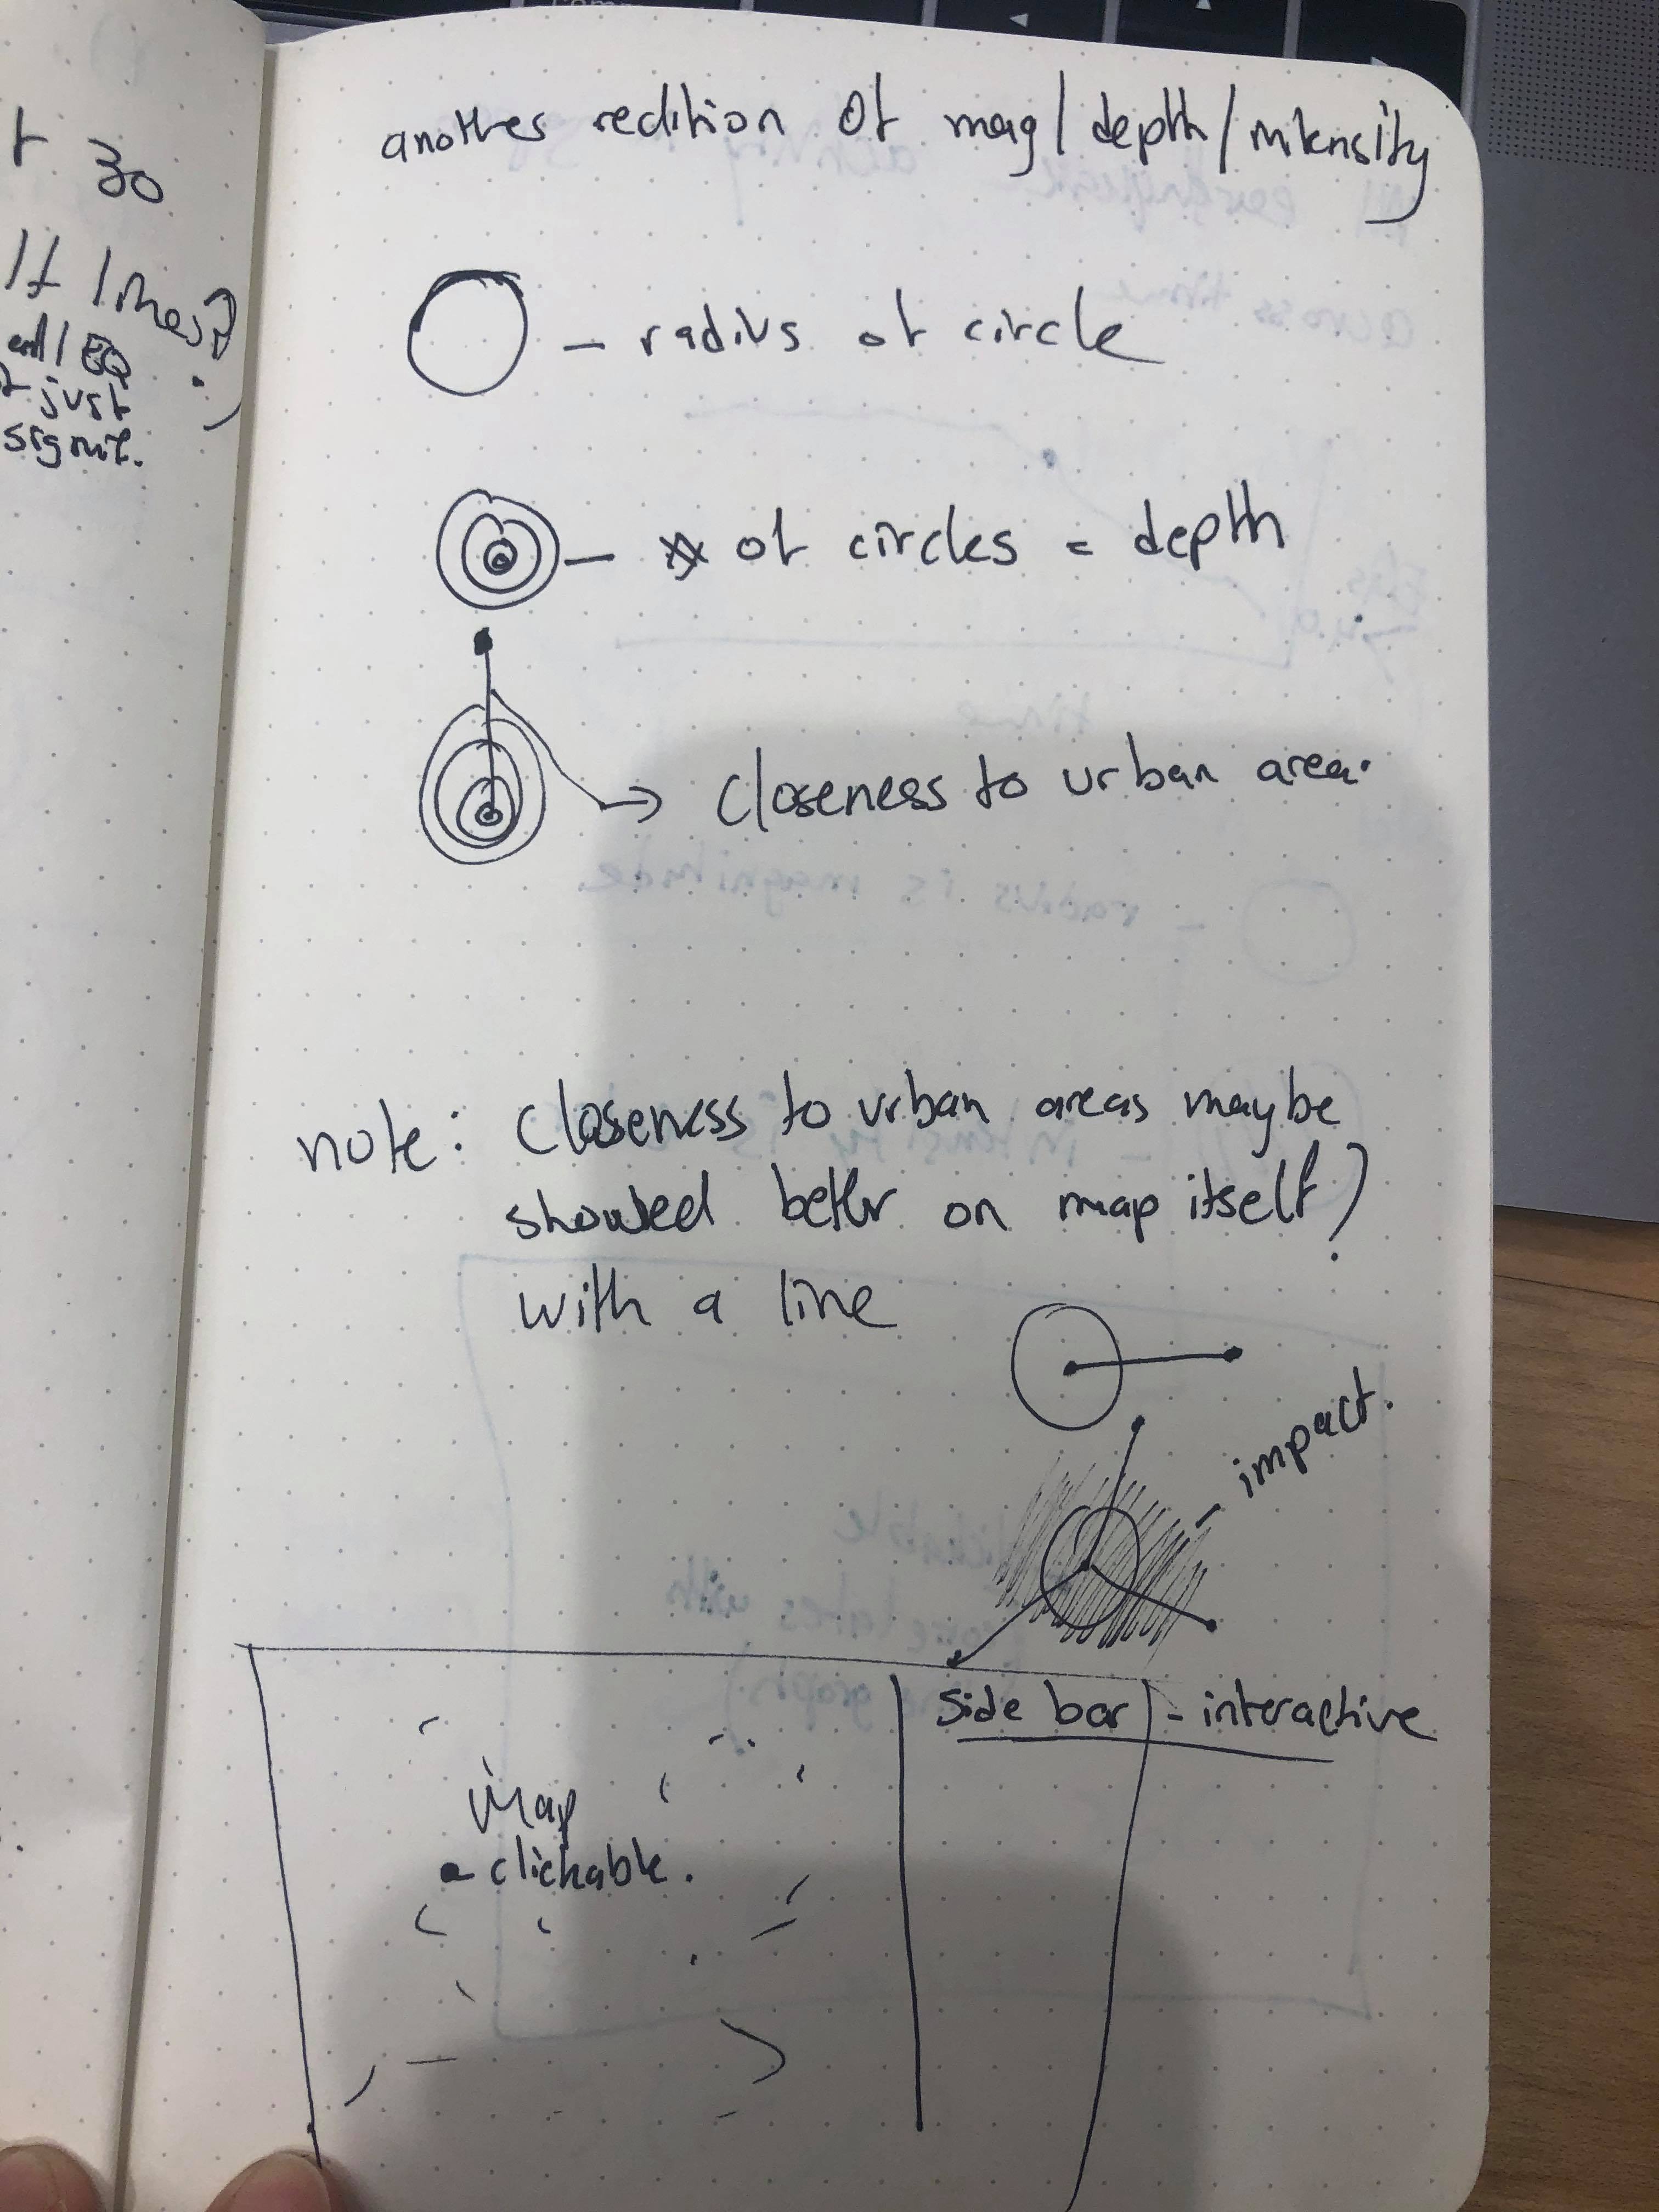 t 30
If lines?
all EQ
just
signif.
another redition of mag/depth/intensity
- radius of circle
- # of circles = depth
→ closeness to urban area.
note: closeness to urban areas maybe
showed better on map itself?
with a line
- impact.
side bar - interactive
Map
- clickable.